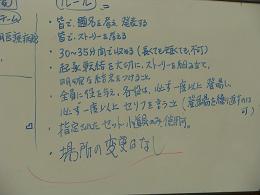 ルール
・皆で、題名を答え 発表する
皆で、ストーリーを考える
・30〜35分間で収める（長くても短くても不可）
・起承転結を大切に、ストーリーを組み立て、
明確な結末をつけること
・全員に役を与え、各役は、必ず一度以上登場し、
必ず一度以上セリフを言うこと
可）
・指定されたセット・小道具のみ使用可。
・場所の変更はなし